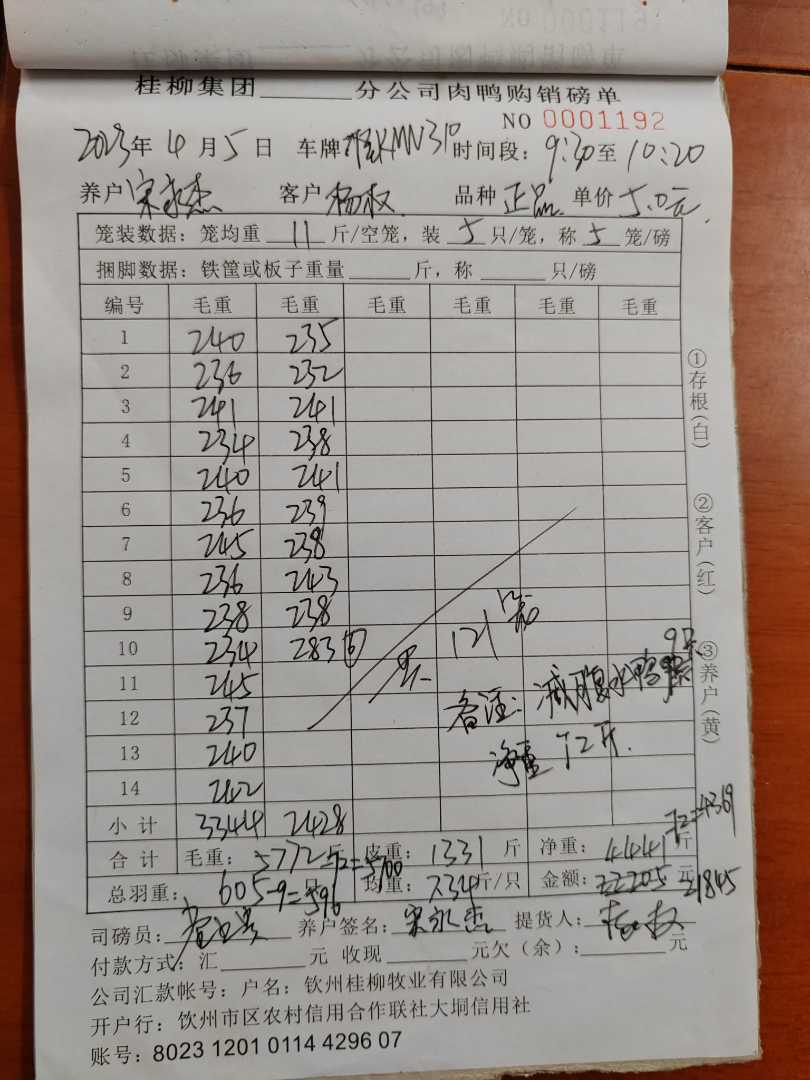 桂柳集团______分公司肉鸭购销磅单
NO 0001192
2023年 4 月 5 日 车牌 MN310 时间段：9:30至10:20
养户 宋永杰 客户 杨权 品种 正品 单价 5.0元
笼装数据：笼均重 11 斤/空笼，装 5 只/笼，称 5 笼/磅
捆脚数据：铁筐或板子重量______斤，称______只/磅
编号 毛重 毛重 毛重 毛重 毛重 毛重
1 240 235
2 236 232
3 241 241
4 234 238
5 240 241
6 236 239
7 245 238
8 236 243
9 238 238
10 234 283 ⑥
11 245
12 237
13 240
14 242
121笼
备注：减腹水鸭9只
净重72斤.
小计 3344 2428
合计 毛重：5772斤-72=5700 皮重：1331斤 净重：4441斤-72=4369
总羽重：605-9=596只 均重：7.34斤/只 金额：22205元 21845
司磅员： 养户签名：宋永杰 提货人：杨权
付款方式：汇______元 收现______元欠（余）：______元
公司汇款帐号：户名：钦州桂柳牧业有限公司
开户行：钦州市区农村信用合作联社大垌信用社
账号：8023 1201 0114 4296 07
①存根（白）
②客户（红）
③养户（黄）